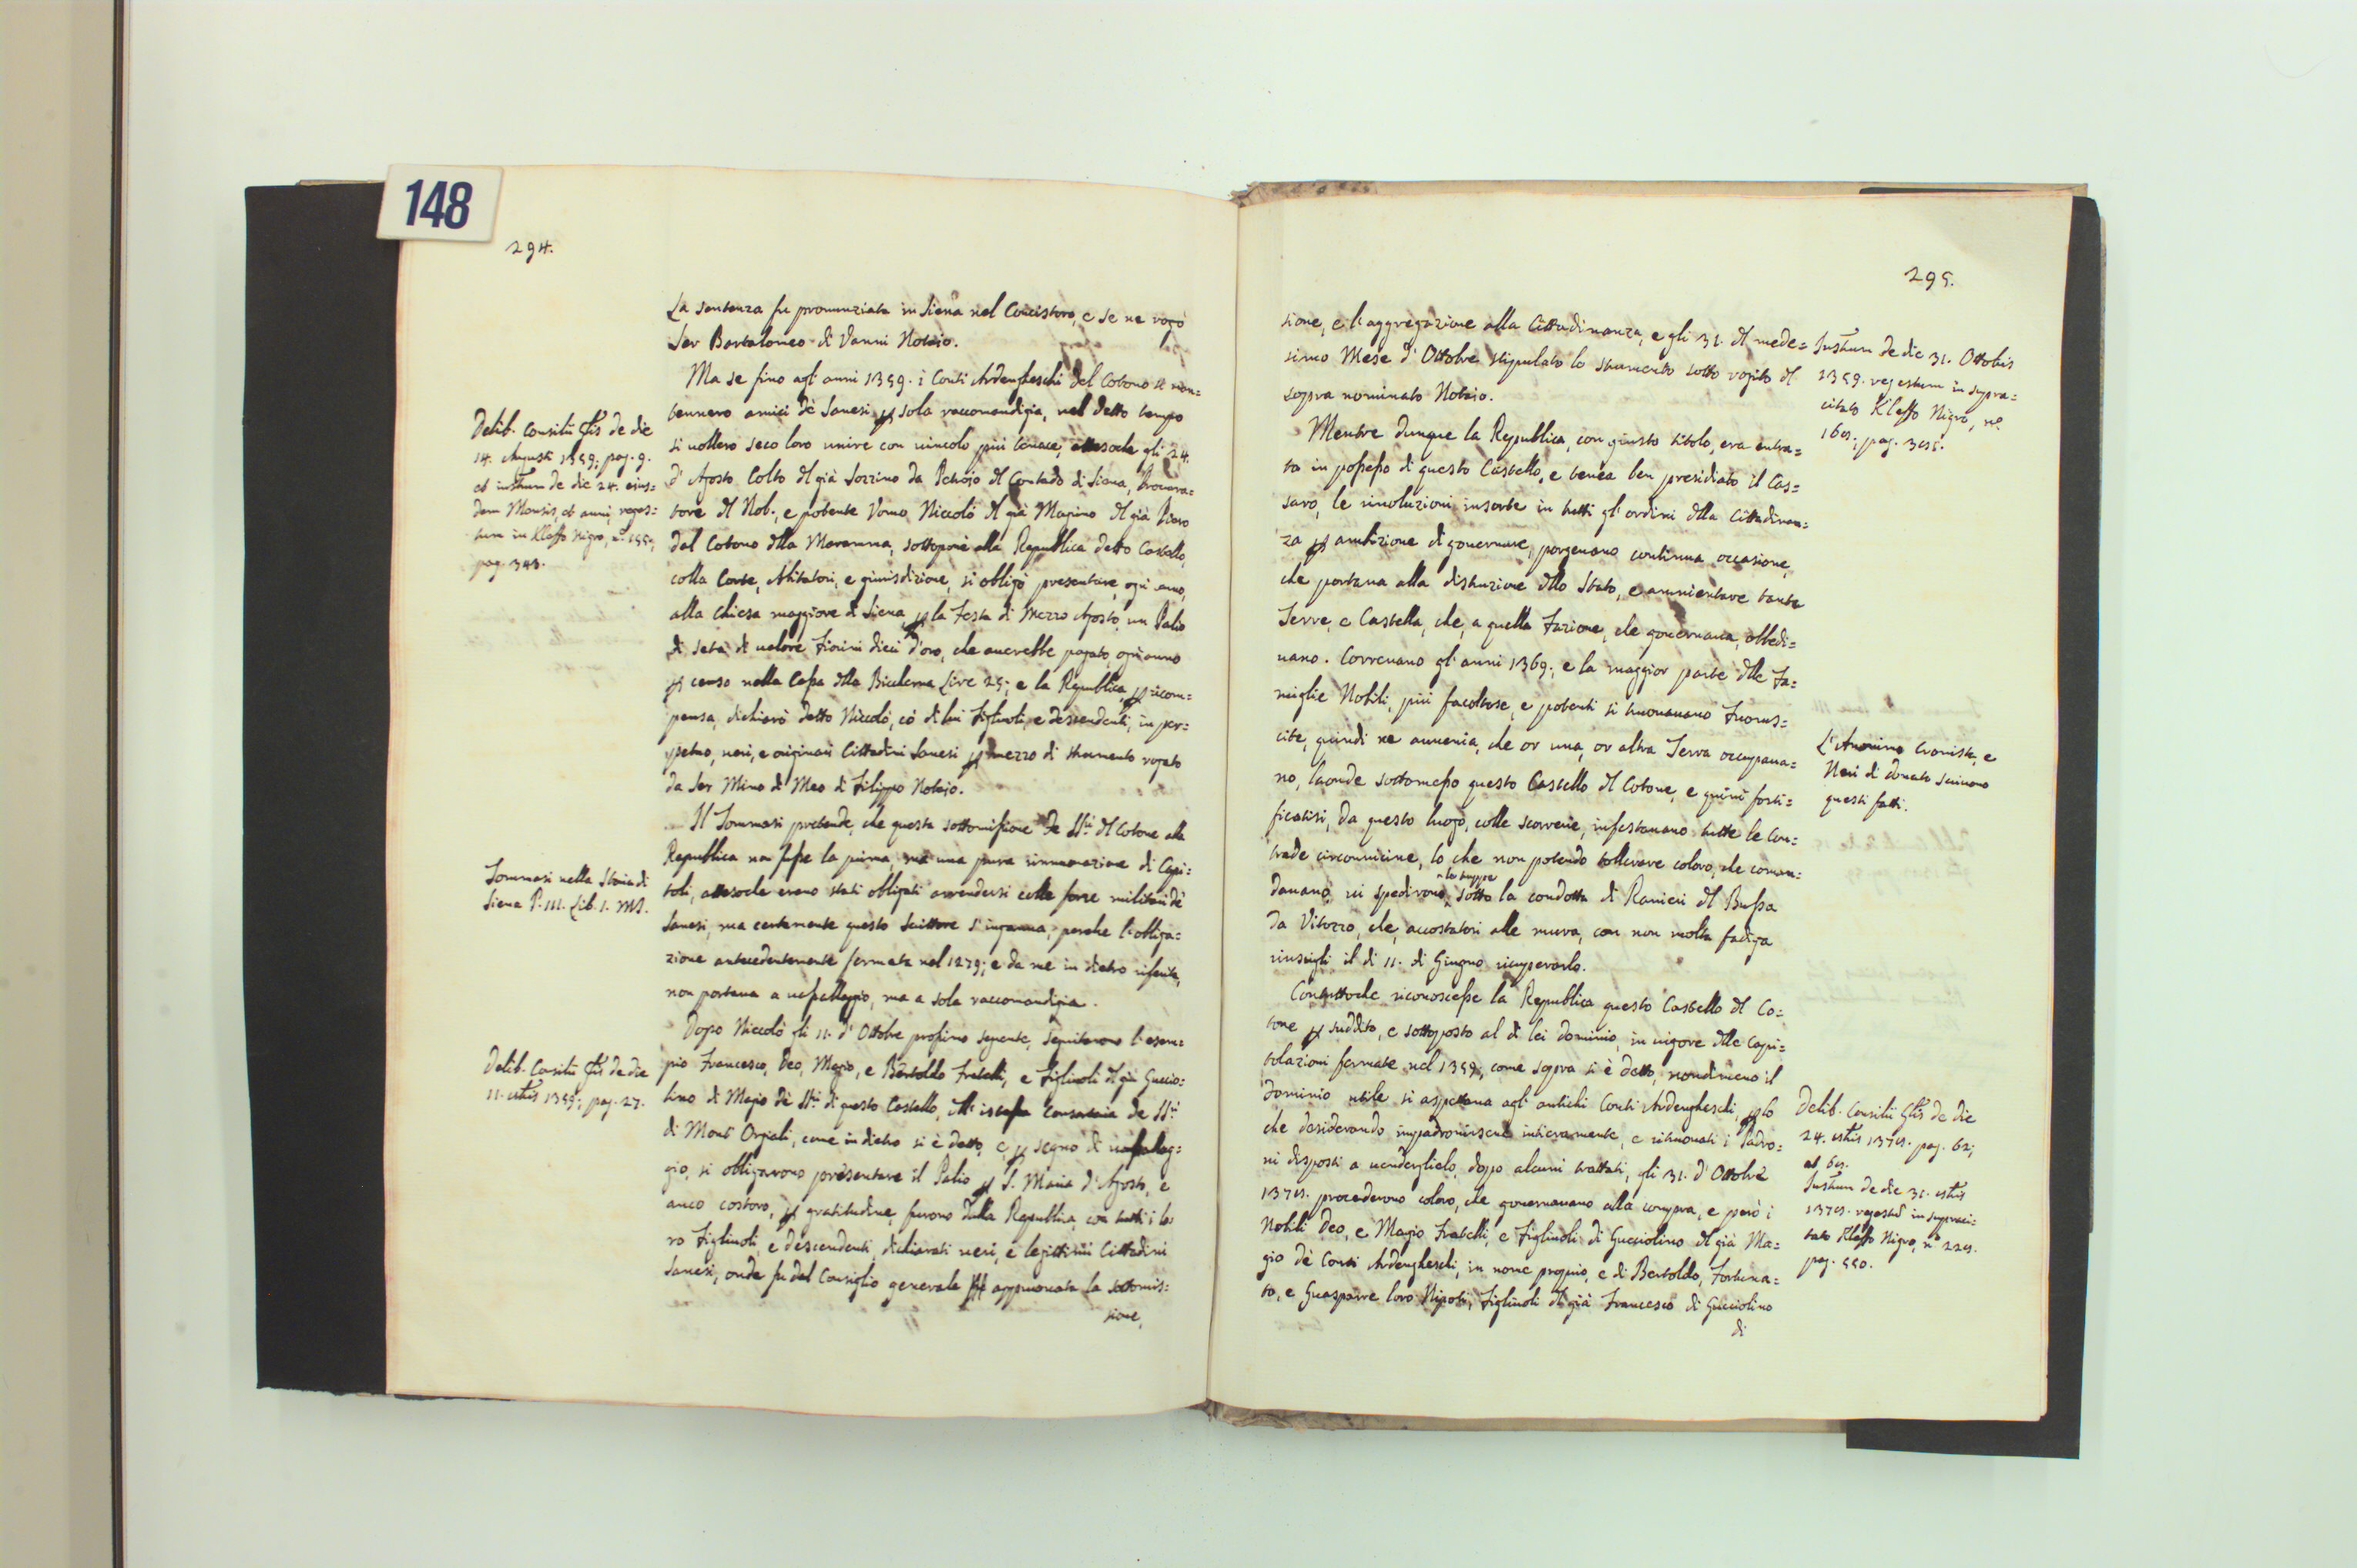 148
294.
La sentenza fu pronunziata in Siena nel Concistoro, e se ne rogò
Ser Bartalomeo di Vanni Notaio.
Ma se fino agl'anni 1359. i Conti Ardengheschi del Cotono si man=
tennero amici dè Sanesi sola raccomandigia, nel detto tempo
si vollero seco loro unire con vincolo più tenace, attesoche gli 24.
d'Agosto Colto del già Sozzino da Petrojo del Contado di Siena, Procura=
tore del Nob., e potente Vomo Niccolò del già Magino del già
dal Cotono della Maremma, sottopose alla Republica detto Castello,
colla Corte, Abitatori, e giurisdizione, si obligò presentare, ogni anno,
alla Chiesa maggiore di Siena, la Festa di Mezzo Agosto, un Palio
di seta di valore Fiorini dieci d'oro, che averebbe pagato, ogn'anno
censo nella Cassa della Biccherna Lire 25; e la Republica, ricom=
pensa, dichiarò detto Niccolò, cò di lui Figliuoli, e descendenti, in per=
petuo, veri, e originari Cittadini Sanesi mezzo di strumento rogato
da Ser Mino di Meo di Filippo Notaio.
Il Tommasi pretende, che questa sottomissione de SS.ri del Cotone alla
Republica non fusse la prima, ma una pura rinnovazione di Capi=
toli, attesoche erano stati obligati arrendersi colle forze militari dè
Sanesi, ma certamente questo Scrittore s'inganna, perche l'obliga=
zione antecedentemente fermata nel 1279; e da me in dietro riferita,
non portava a vassallaggio, ma a sola raccomandigia.
Dopo Niccolò gli 11. d'Ottobre prossimo seguente, seguitarono l'esem=
pio Francesco, Deo, Magio, e Bertoldo Fratelli, e Figliuoli del già Guccio=
lino di Magio dè SS.ri di questo Castello, della istessa Consorteria de SS.ri
di Mont'Orgiali, come in dietro si è detto, e, segno di vassallag=
gio, si obligarono presentare il Palio S. Maria d'Agosto, e
anco costoro, gratitudine, furono dalla Republica, con tutti i lo
ro Figliuoli, e descendenti, dichiarati veri, e legittimi Cittadini
Sanesi, onde fu dal Consiglio generale approvata la sottomis=
sione,
Delib. Consilii Gnlis de die
14. Augusti 1359; pag. 9.
et instrum de die 24. eius=
dem Mensis, et anni, reges=
tum in Kleffo Nigro, n.o 155,
pag. 343.
Tommasi nella Storia di
Siena P. III. Lib. I. MS.
Delib. Consilii Gnlis de die
11. 8bris 1359; pag. 27.
295.
sione, e l'aggregazione alla Cittadinanza, e gli 31. del mede=
simo Mese d'Ottobre stipulato lo strumento sotto rogito del
sopra nominato Notaio.
Mentre dunque la Republica, con giusto titolo, era entra=
ta in possesso di questo Castello, e tenéa ben presidiato il Cas=
saro, le rivoluzioni insorte in tutti gl'ordini della Cittadinan=
za ambizione di governare, porgevano continua occasione,
che portava alla distruzione dello Stato, e annientare tante
Terre, e Castella, che, a quella Fazione, che governava, obbedi=
vano. Correvano gl'anni 1369; e la maggior parte delle Fa=
miglie Nobili, più facoltose, e potenti si trovavano Fuorus=
cite, quindi ne avvenia, che or una, or altra Terra occupava=
no, laonde sottomesso questo Castello del Cotone, e quivi forti=
ficatisi, da questo luogo, colle scorrerie, infestavano tutte le Con=
trade circonvicine, lo che non potendo tollerare coloro, che coman=
davano, vi spedirono, le truppe sotto la condotta di Ranieri del Bussa
da Vitozzo, che, accostatosi alle mura, con non molta fadiga
riuscigli il dì 11. di Giugno ricuperarlo.
Contuttoche riconoscesse la Republica questo Castello del Co=
tone suddito, e sottoposto al di lei dominio, in vigore delle Capi=
tolazioni fermate nel 1359, come sopra si è detto, nondimeno il
dominio utile si aspettava agl'antichi Conti Ardengheschi, lo
che desiderando impadronirsene intieramente, e ritrovati i Padro=
ni disposti a venderglielo, doppo alcuni trattati, gli 31. d'Ottobre
procederono coloro, che governavano alla compra, e però i
Nobili Deo, e Magio Fratelli, e Figliuoli di Gucciolino del già Ma=
gio dè Conti Ardengheschi, in nome proprio, e di Bertoldo, Fortuna=
to, e Guasparre loro Nipoti, Figliuoli del già Francesco di Gucciolino
di
Instrum de die 31. Ottobris
1359. regestum in supra=
citato Kleffo Nigro, n.o
L'Anonimo Cronista, e
Neri di Donato scrivono
questi fatti.
Delib. Consilii Gnlis de die
24. 8bris pag. 62;
Instrum de die 31. 8bris
regestum in supraci=
tato Kleffo Nigro, n.o
pag. 550.